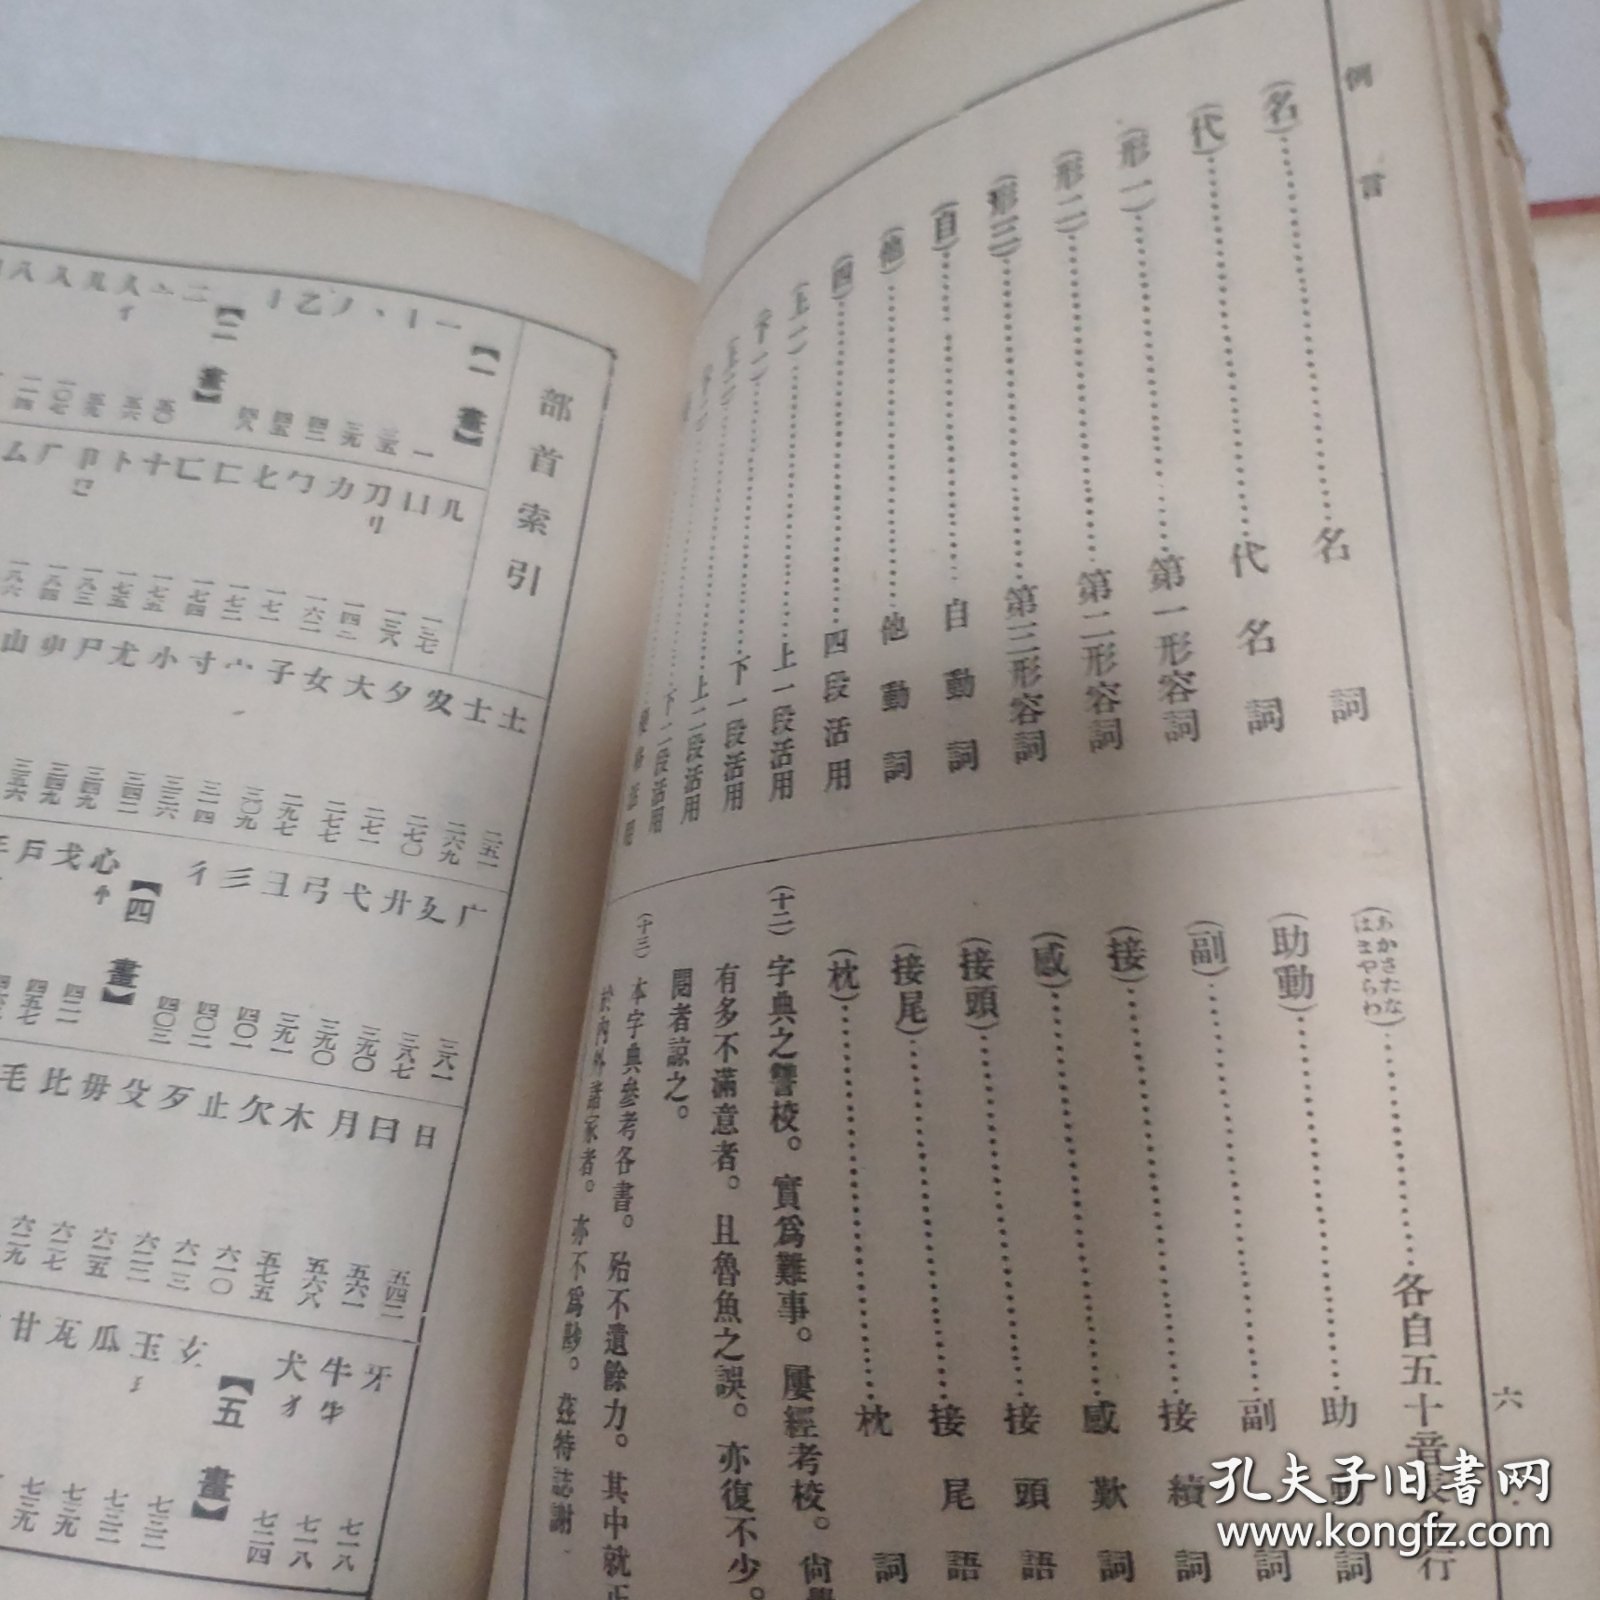 例言
(名)……名詞
(代)……代名詞
(形一)……第一形容詞
(形二)……第二形容詞
(形三)……第三形容詞
(自)……自動詞
(他)……他動詞
(四)……四段活用
(上一)……上一段活用
(下一)……下一段活用
(上二)……上二段活用
(下二)……下二段活用
(あかさたなはまやらわ)……各自五十音表各行
(助動)……助動詞
(副)……副詞
(接)……接續詞
(感)……感歎詞
(接頭)……接頭語
(接尾)……接尾語
(枕)……枕詞
(十二)字典之讐校。實爲難事。屢經考校。尙
有多不滿意者。且魯魚之誤。亦復不少。
閱者諒之。
(十三)本字典參考各書。殆不遺餘力。其中就正
於內外諸家者。亦不爲尠。茲特誌謝
六
部首索引
【一畫】
一 一
丨 三五
丶 三九
丿 四二
乙 四五
亅 四八
【二畫】
二 五〇
亠 五六
人亻 五九
儿 一〇七
入 一一四
八
几 一三七
凵 一三六
刀刂 一四二
力 一六二
勹 一七一
匕 一七二
匚 一七四
匸 一七五
十 一七五
卜 一八三
卩㔾 一八四
厂 一八六
厶
土 二五一
士 二六九
夊 二七〇
夕 二七一
大 二七七
女 二九七
子 三〇九
宀 三一四
寸 三三六
小 三四二
尢 三四九
尸 三四九
屮 三五六
山
广 三八一
廴 三八七
廾 三九〇
弋 三九〇
弓 三九一
彐 四〇一
彡 四〇二
彳 四〇三
【四畫】
心忄 四二二
戈 四五七
戶
日 五四二
曰 五六一
月 五六八
木 五七五
欠 六一〇
止 六一三
歹 六二二
殳 六二五
毋 六二七
比 六二九
毛
牙 七一八
牛牜 七一八
犬犭 七二四
【五畫】
玄 七三二
玉𤣩 七三二
瓜 七三九
瓦 七三九
甘
孔夫子旧书网
www.kongfz.com